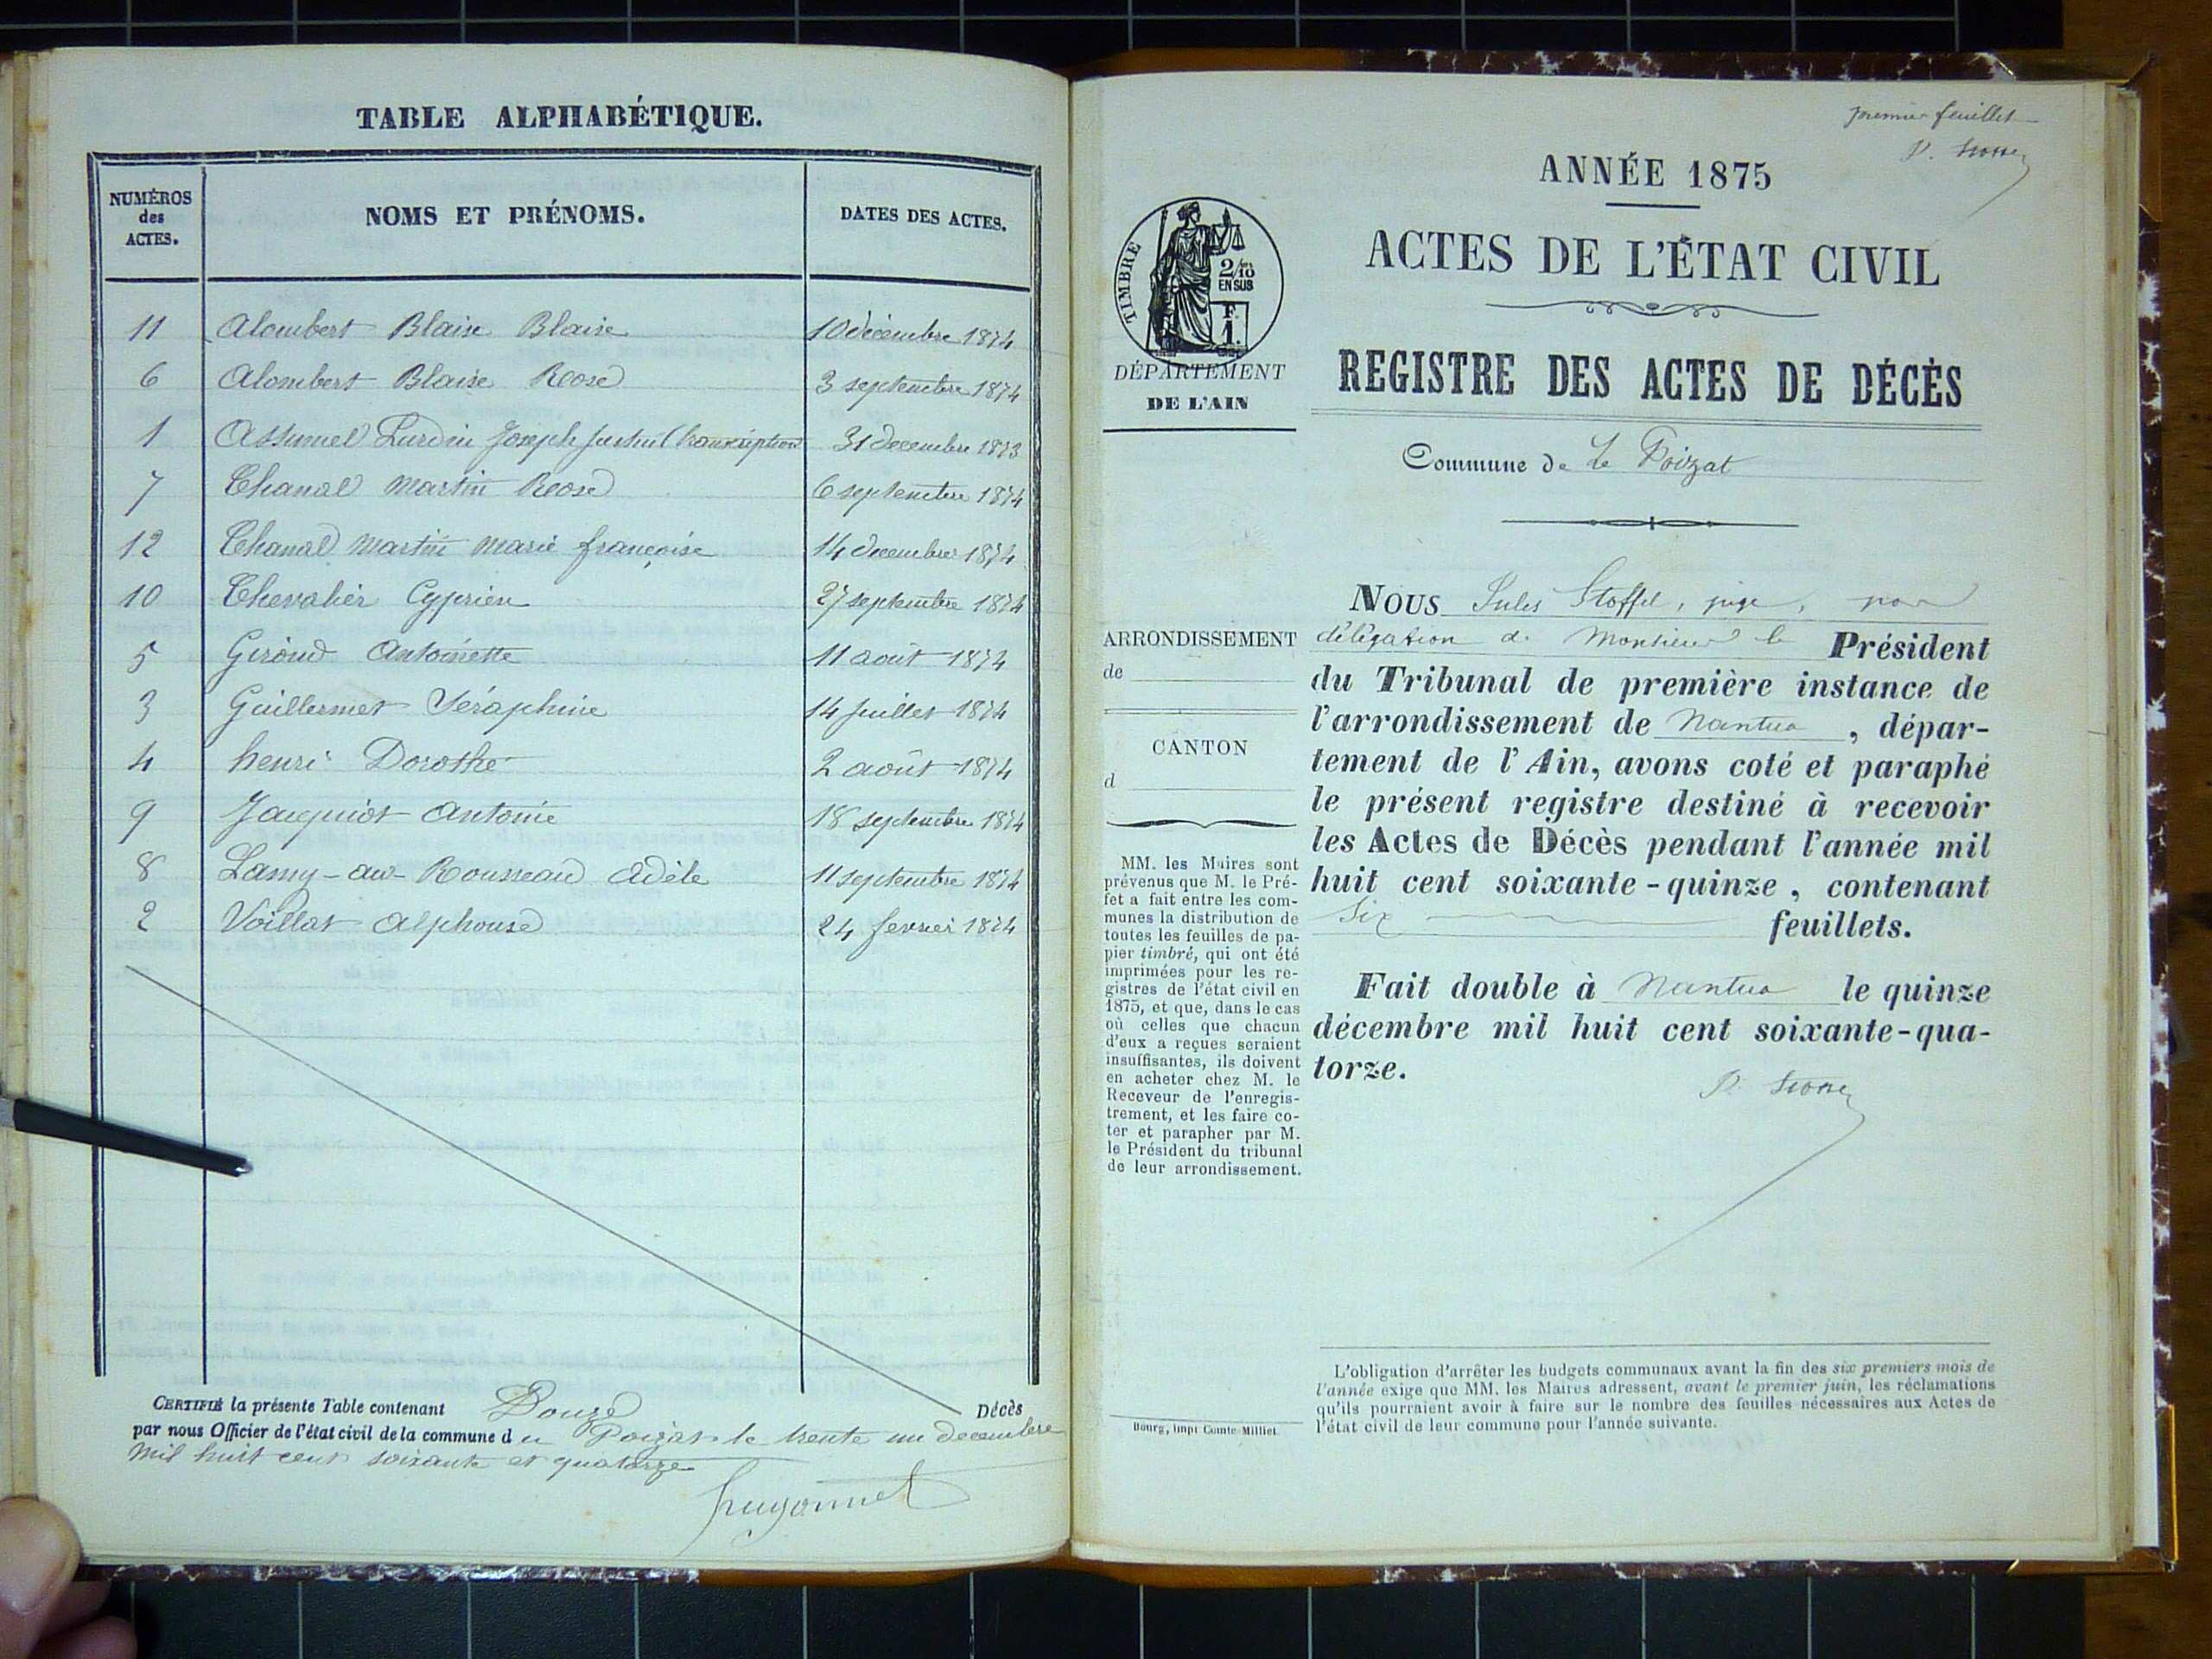 TABLE ALPHABÉTIQUE.
NUMÉROS des ACTES. NOMS ET PRÉNOMS. DATES DES ACTES.
11 Alombert Blaise Blaise 10 décembre 1874
6 Alombert Blaise Rose 3 septembre 1874
1 Assumel Lurdin Joseph Justin (transcription 31 décembre 1873
7 Chanal Martin Rose 6 septembre 1874
12 Chanal Martin Marie françoise 14 decembre 1874
10 Chevalier Cyprien 27 septembre 1874
5 Giroud Antoinette 11 août 1874
3 Guillermet Séraphine 14 juillet 1874
4 henri Dorothé 2 août 1874
9 Jacquiot Antoine 18 septembre 1874
8 Lamy-au-Rousseau Adèle 11 septembre 1874
2 Voillat Alphonse 24 fevrier 1874
CERTIFIÉ la présente Table contenant Douze Décès
par nous Officier de l'état civil de la commune du Poizat le trente un decembre
mil huit cent soixante et quatorze
premier feuillet
ANNÉE 1875
ACTES DE L'ÉTAT CIVIL
TIMBRE
2/10 EN SUS
F. 1.
DÉPARTEMENT
DE L'AIN
REGISTRE DES ACTES DE DÉCÈS
Commune de Le Poizat
ARRONDISSEMENT
de
CANTON
d
MM. les Maires sont
prévenus que M. le Pré-
fet a fait entre les com-
munes la distribution de
toutes les feuilles de pa-
pier timbré, qui ont été
imprimées pour les re-
gistres de l'état civil en
1875, et que, dans le cas
où celles que chacun
d'eux a reçues seraient
insuffisantes, ils doivent
en acheter chez M. le
Receveur de l'enregis-
trement, et les faire co-
ter et parapher par M.
le Président du tribunal
de leur arrondissement.
Bourg, impr Comte-Milliet
NOUS Jules Stoffel, juge, par
délégation de Monsieur le Président
du Tribunal de première instance de
l'arrondissement de Nantua, dépar-
tement de l'Ain, avons coté et paraphé
le présent registre destiné à recevoir
les Actes de Décès pendant l'année mil
huit cent soixante-quinze, contenant
Six feuillets.
Fait double à Nantua le quinze
décembre mil huit cent soixante-qua-
torze.
L'obligation d'arrêter les budgets communaux avant la fin des six premiers mois de
l'année exige que MM. les Maires adressent, avant le premier juin, les réclamations
qu'ils pourraient avoir à faire sur le nombre des feuilles nécessaires aux Actes de
l'état civil de leur commune pour l'année suivante.